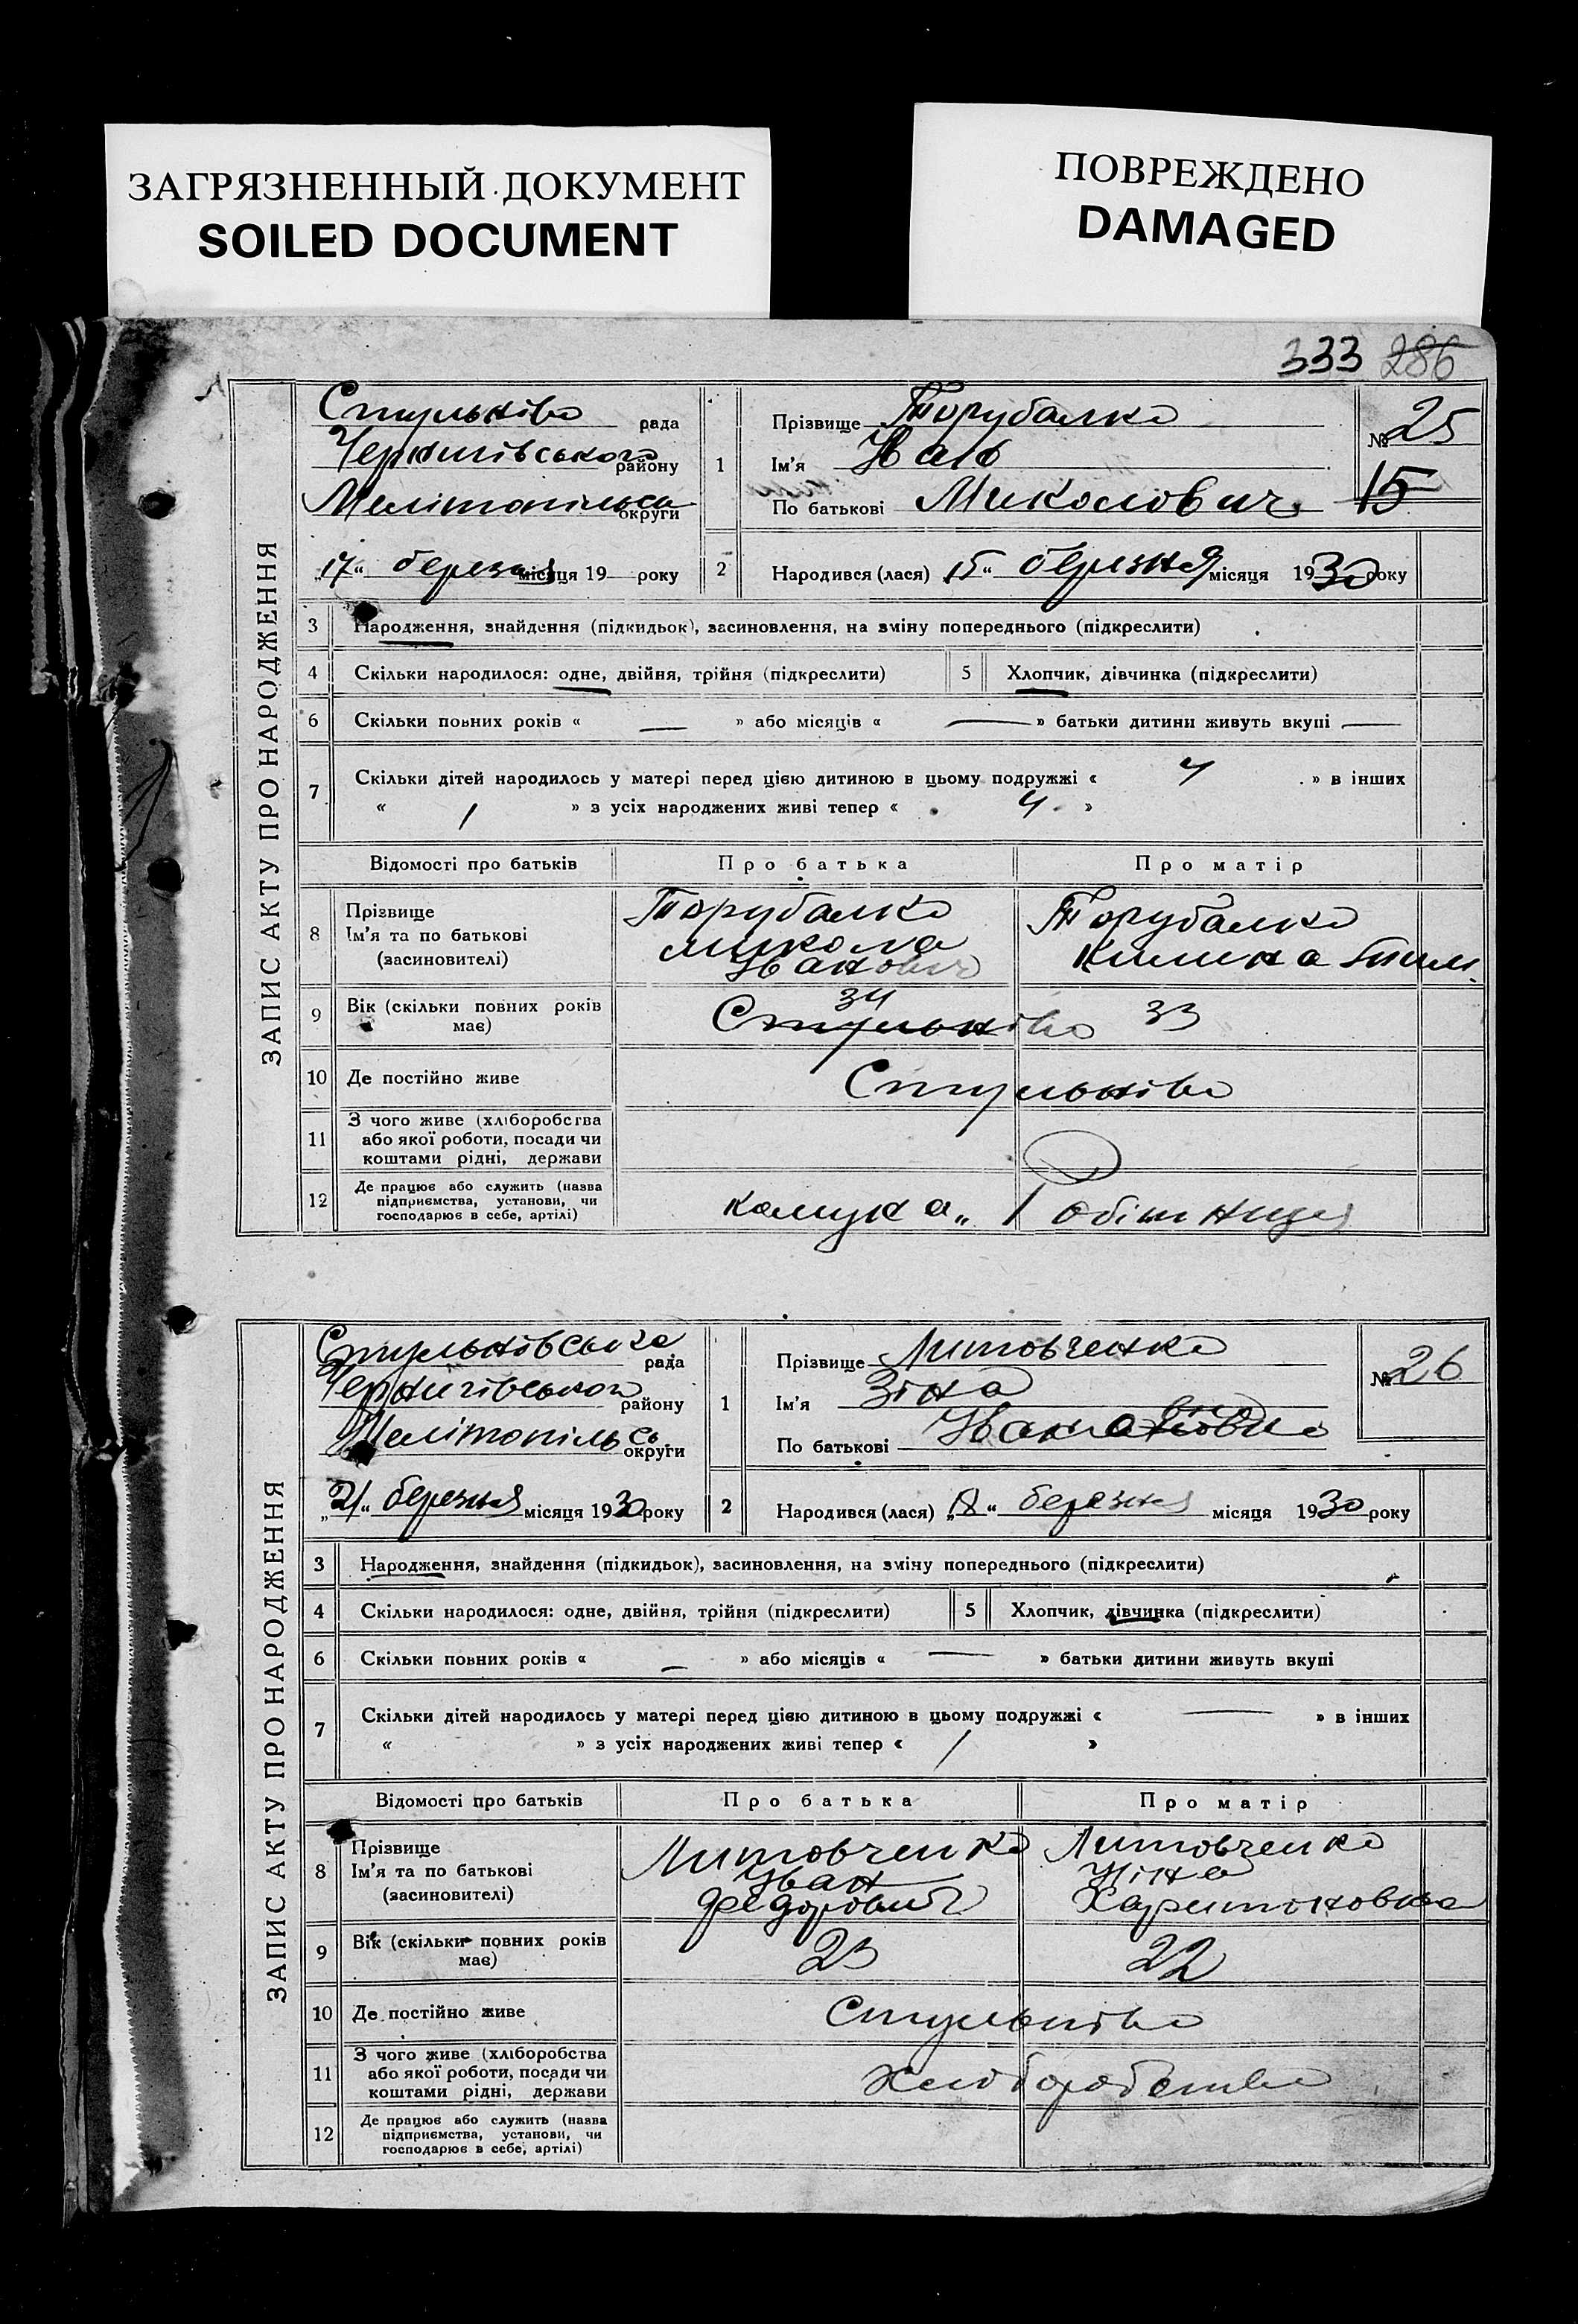 ЗАГРЯЗНЕННЫЙ ДОКУМЕНТ
SOILED DOCUMENT
ПОВРЕЖДЕНО
DAMAGED
333 286
ЗАПИС АКТУ ПРО НАРОДЖЕННЯ
Стульніво рада
Чернигівського району
Мелітопільськ округи
„17“ березня місяця 19 року
1 Прізвище Торубалко
Ім'я Іван
По батькові Миколович
№ 25
15
2 Народився (лася) 15“ березня місяця 1930 року
3 Народження, знайдення (підкидьок), засиновлення, на зміну попереднього (підкреслити)
4 Скільки народилося: одне, двійня, трійня (підкреслити) 5 Хлопчик, дівчинка (підкреслити)
6 Скільки повних років « — » або місяців « — » батьки дитини живуть вкупі —
7 Скільки дітей народилось у матері перед цією дитиною в цьому подружжі « 4 » в інших
« 1 » з усіх народжених живі тепер « 4 »
Відомості про батьків Про батька Про матір
8 Прізвище
Ім'я та по батькові
(засиновителі)
Торубалко
микола
Іванович
Торубалко
Килина
9 Вік (скільки повних років
має)
34
Стульніво
33
10 Де постійно живе Стульніво
11 З чого живе (хліборобства
або якої роботи, посади чи
коштами рідні, держави
12 Де працює або служить (назва
підприємства, установи, чи
господарює в себе, артілі)
комуна„ Робітниця
ЗАПИС АКТУ ПРО НАРОДЖЕННЯ
Стульнівська рада
Чернигівського району
Мелітопільсь округи
„21“ березня місяця 1930 року
1 Прізвище Литовченко
Ім'я Зіна
По батькові
№ 26
2 Народився (лася) „18“ березня місяця 1930 року
3 Народження, знайдення (підкидьок), засиновлення, на зміну попереднього (підкреслити)
4 Скільки народилося: одне, двійня, трійня (підкреслити) 5 Хлопчик, дівчинка (підкреслити)
6 Скільки повних років « — » або місяців « — » батьки дитини живуть вкупі
7 Скільки дітей народилось у матері перед цією дитиною в цьому подружжі « — » в інших
« » з усіх народжених живі тепер « 1 »
Відомості про батьків Про батька Про матір
8 Прізвище
Ім'я та по батькові
(засиновителі)
Литовченко
Іван
Федорович
Литовченко
Ніна
Харитоновна
9 Вік (скільки повних років
має)
23 22
10 Де постійно живе Стульніво
11 З чого живе (хліборобства
або якої роботи, посади чи
коштами рідні, держави
Хліборобство
12 Де працює або служить (назва
підприємства, установи, чи
господарює в себе, артілі)